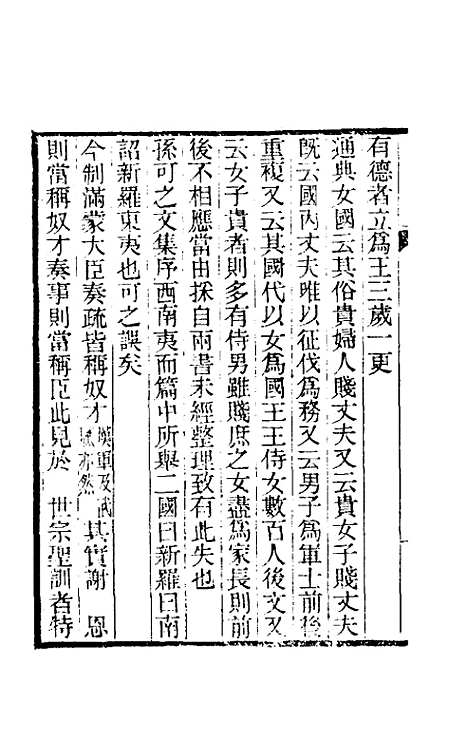 有德者立爲王三歲一更
通典女國云其俗貴婦人賤丈夫又云貴女子賤丈夫
旣云國內丈夫唯以征伐爲務又云男子爲軍士前後
重複又云其國代以女爲國王王侍女數百人後文又
云女子貴者則多有侍男雖賤庶之女盡爲家長則前
後不相應當由採自兩書未經整理致有此失也
孫可之文集序西南夷而篇中所舉二國曰新羅曰南
詔新羅東夷也可之誤矣
今制滿蒙大臣奏疏皆稱奴才漢軍及武臣亦然其實謝 恩
則當稱奴才奏事則當稱臣此見於 世宗聖訓者特